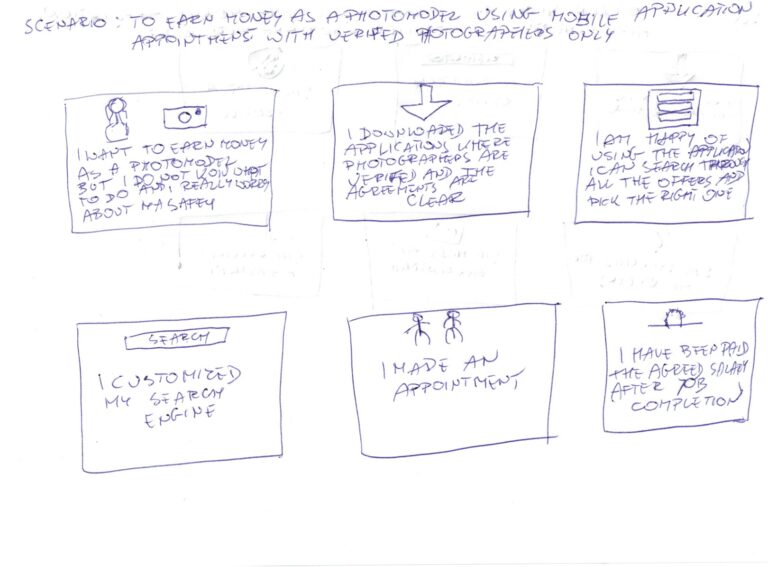 SCENARIO: TO EARN MONEY AS A PHOTOMODEL USING MOBILE APPLICATION
APPOINTMENS WITH VERIFIED PHOTOGRAPHERS ONLY
I WANT TO EARN MONEY
AS A PHOTOMODEL
BUT I DO NOT KOW WHAT
TO DO AND I REALLY WORRY
ABOUT MA SAFEY
I DOWNLOADED THE
APPLICATIONS WHERE
PHOTOGRAPHERS ARE
VERIFIED AND THE
AGREEMENTS ARE
CLEAR
I AM HAPPY OF
USING THE APPLICATION
I CAN SEARCH THROUGH
ALL THE OFFERS AND
PICK THE RIGHT ONE
SEARCH
I CUSTOMIZED
MY SEARCH
ENGINE
I MADE AN
APPOINTMENT
I HAVE BEEN PAID
THE AGREED SALARY
AFTER JOB
COMPLETION